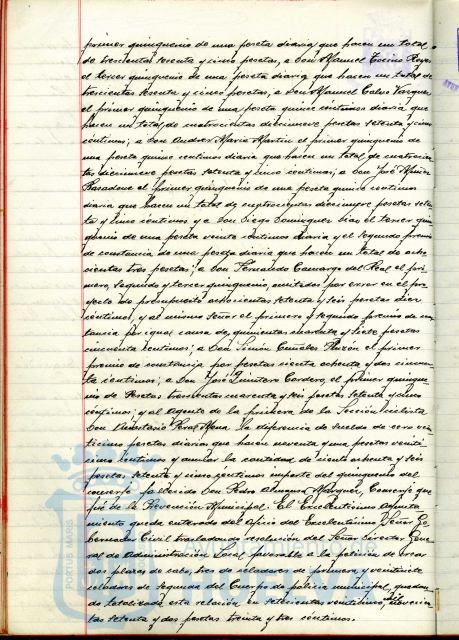 primer quinquenio de una peseta diaria que hacen un total
de trescientas sesenta y cinco pesetas, a Don Manuel Tocino Reyes
el tercer quinquenio de una peseta diaria que hacen un total de
trescientas sesenta y cinco pesetas; a Don Manuel Calvo Vargas
el primer quinquenio de una peseta quince centimos diaria que
hacen un total de cuatrocientas diecinueve pesetas setenta y cinco
centimos; a Don Andres Maria Martin el primer quinquenio de
una peseta quince centimos diaria que hacen un total de cuatrocien-
tas diecinueve pesetas setenta y cinco centimos; a Don José
el primer quinquenio de una peseta quince centimos
diaria que hacen un total de cuatrocientas diecinueve pesetas seten-
ta y cinco centimos y a Don Diego Dominguez Diaz el tercer quin-
quenio de una peseta veinte centimos diaria y el segundo premio
de constancia de una peseta diaria que hacen un total de ocho-
cientas tres pesetas; a Don Fernando Camargo del Real el pri-
mero, segundo y tercer quinquenio, omitidos por error en el pro-
yecto de presupuesto ochocientas setenta y seis pesetas diez
centimos, y al mismo señor el primero y segundo premio de cons-
tancia por igual causa de quinientas cuarenta y siete pesetas
cincuenta centimos; a Don Simón Cumbles el primer
premio de constancia por pesetas ciento ochenta y dos cincuen-
ta centimos; a Don José Quintero Cordero, el primer quinque-
nio de Pesetas trescientas cuarenta y seis pesetas setenta y cinco
centimos; y al Agente de la primera de la Sección ciclista
Don Anastasio la diferencia de sueldo de cero vein-
ticinco pesetas diarias que hacen noventa y una pesetas veinti-
cinco centimos y anular la cantidad de ciento ochenta y seis
pesetas setenta y cinco centimos importe del quinquenio del
conserje fallecido Don Pedro Marquez, Conserje que
fué de la Prevención Municipal. El Excelentisimo Ayunta-
miento queda enterado del oficio del Excelentisimo Señor Go-
bernador Civil trasladando resolución del Señor Director Gene-
ral de Administración Local favorable a la petición de crear
dos plazas de cabo, tres de celadores de primera y veintisiete
celadores de segunda del Cuerpo de policia municipal, quedan-
do totalizada esta relación en setecientas veinticinco mil novecien-
tas setenta y dos pesetas treinta y tres centimos.
PORTUS MARIS
Ayuntamiento de
HUELVA